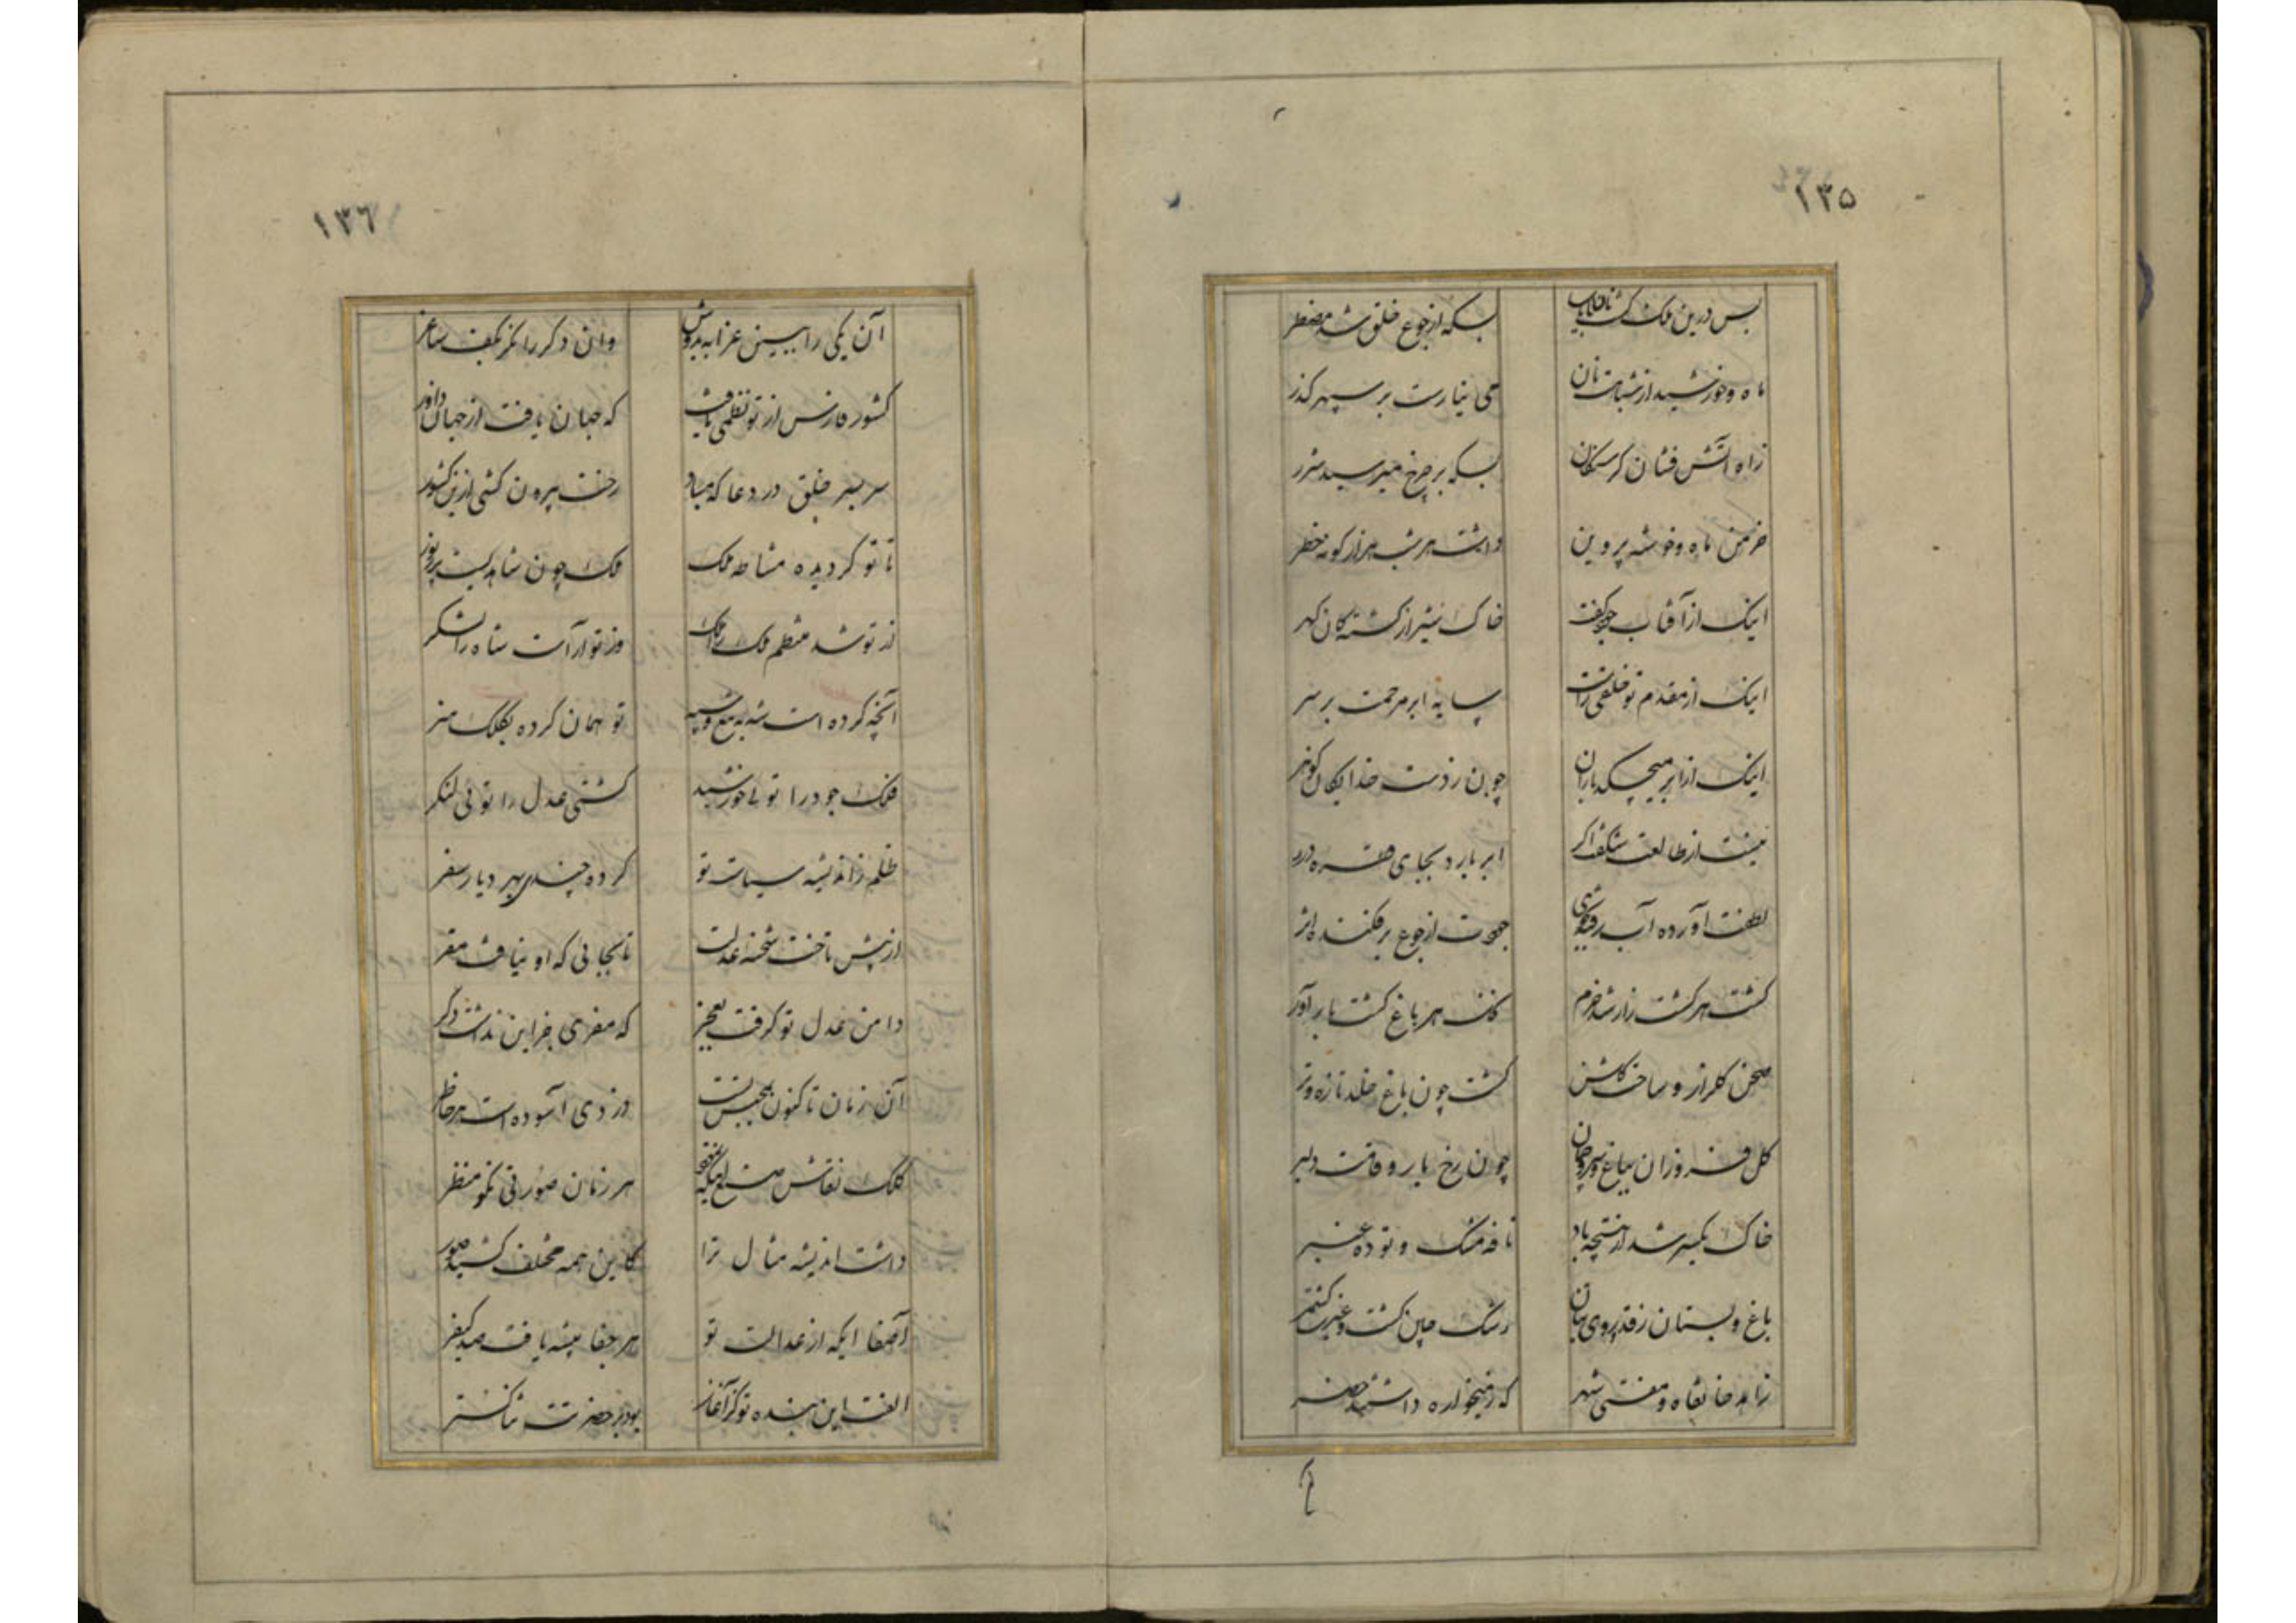 ۱۳۵
بس درین ملک کشت نان نایاب بسکه از جوع خلق شد مضطر
ماه و خورشید از شباهت نان می نیارست بر سپهر گذر
ز آه آتش فشان گرسنگان بسکه بر چرخ میرسید شرر
خرمن ماه و خوشه پروین داشت هر شب هزار گونه خطر
اینک از آفتاب جود کفت خاک شیراز کشته کان گهر
اینک از مقدم تو خلقی راست سایه ابر مرحمت بر سر
اینک از ابر میچکد باران چون ز دست خدایگان گوهر
نیست از طالعت شگفت اگر ابر بارد بجای قطره درر
لطفت آورده آب رفته بجوی جودت از جوع برفکنده اثر
کشت هر کشت زار شد خرم شاخ هر باغ کشت بارآور
صحن گلزار و ساحت گلشن کشت چون باغ خلد تازه و تر
گل فروزان بباغ و سرو چمان چون رخ یار و قامت دلبر
خاک یکسر شد از نتیجه باد نافه مشک و توده عنبر
باغ و بستان ز قد و روی بتان رشک چین کشت و غیرت کشمر
زاهد خانقاه و مفتی شهر که ز میخواره داشتند حذر
۱۳۶
آن یکی را ببین عزابه بدوش وان دگر را نگر بکف ساغر
کشور فارس از تو نظمی یافت که جهان یافت از جهان داور
سر بسر خلق در دعا که مباد رخت بیرون کشی ازین کشور
تا تو گردیده مشاطه ملک ملک چون شاهدیست پر زیور
از تو شد منتظم ملک را ملک وز تو آراست شاه را لشکر
آنچه کرده است شه به تیغ و سپه تو همان کرده بکلک هنر
فلک جود را توئی خورشید کشتی عدل را توئی لنگر
ظلم ز اندیشه سیاست تو کرده چندی بهر دیار سفر
از پیش تاخت شحنه عدلت تا بجائی که او نیافت مقر
دامن عدل تو گرفت بعجز که مفری جز این نداشت دگر
آن زمان تا کنون بحبس تست وز وی آسوده است هر خاطر
کلک نقاش صنع هر زمان صورتی نکو منظر
داشت اندیشه مثال ترا کاین همه مختلف کشید صور
آصفا ایکه از عدالت تو هر جفا پیشه یافت صد کیفر
الفت این بنده تو کز آغاز بود بر حضرتت ثنا گستر